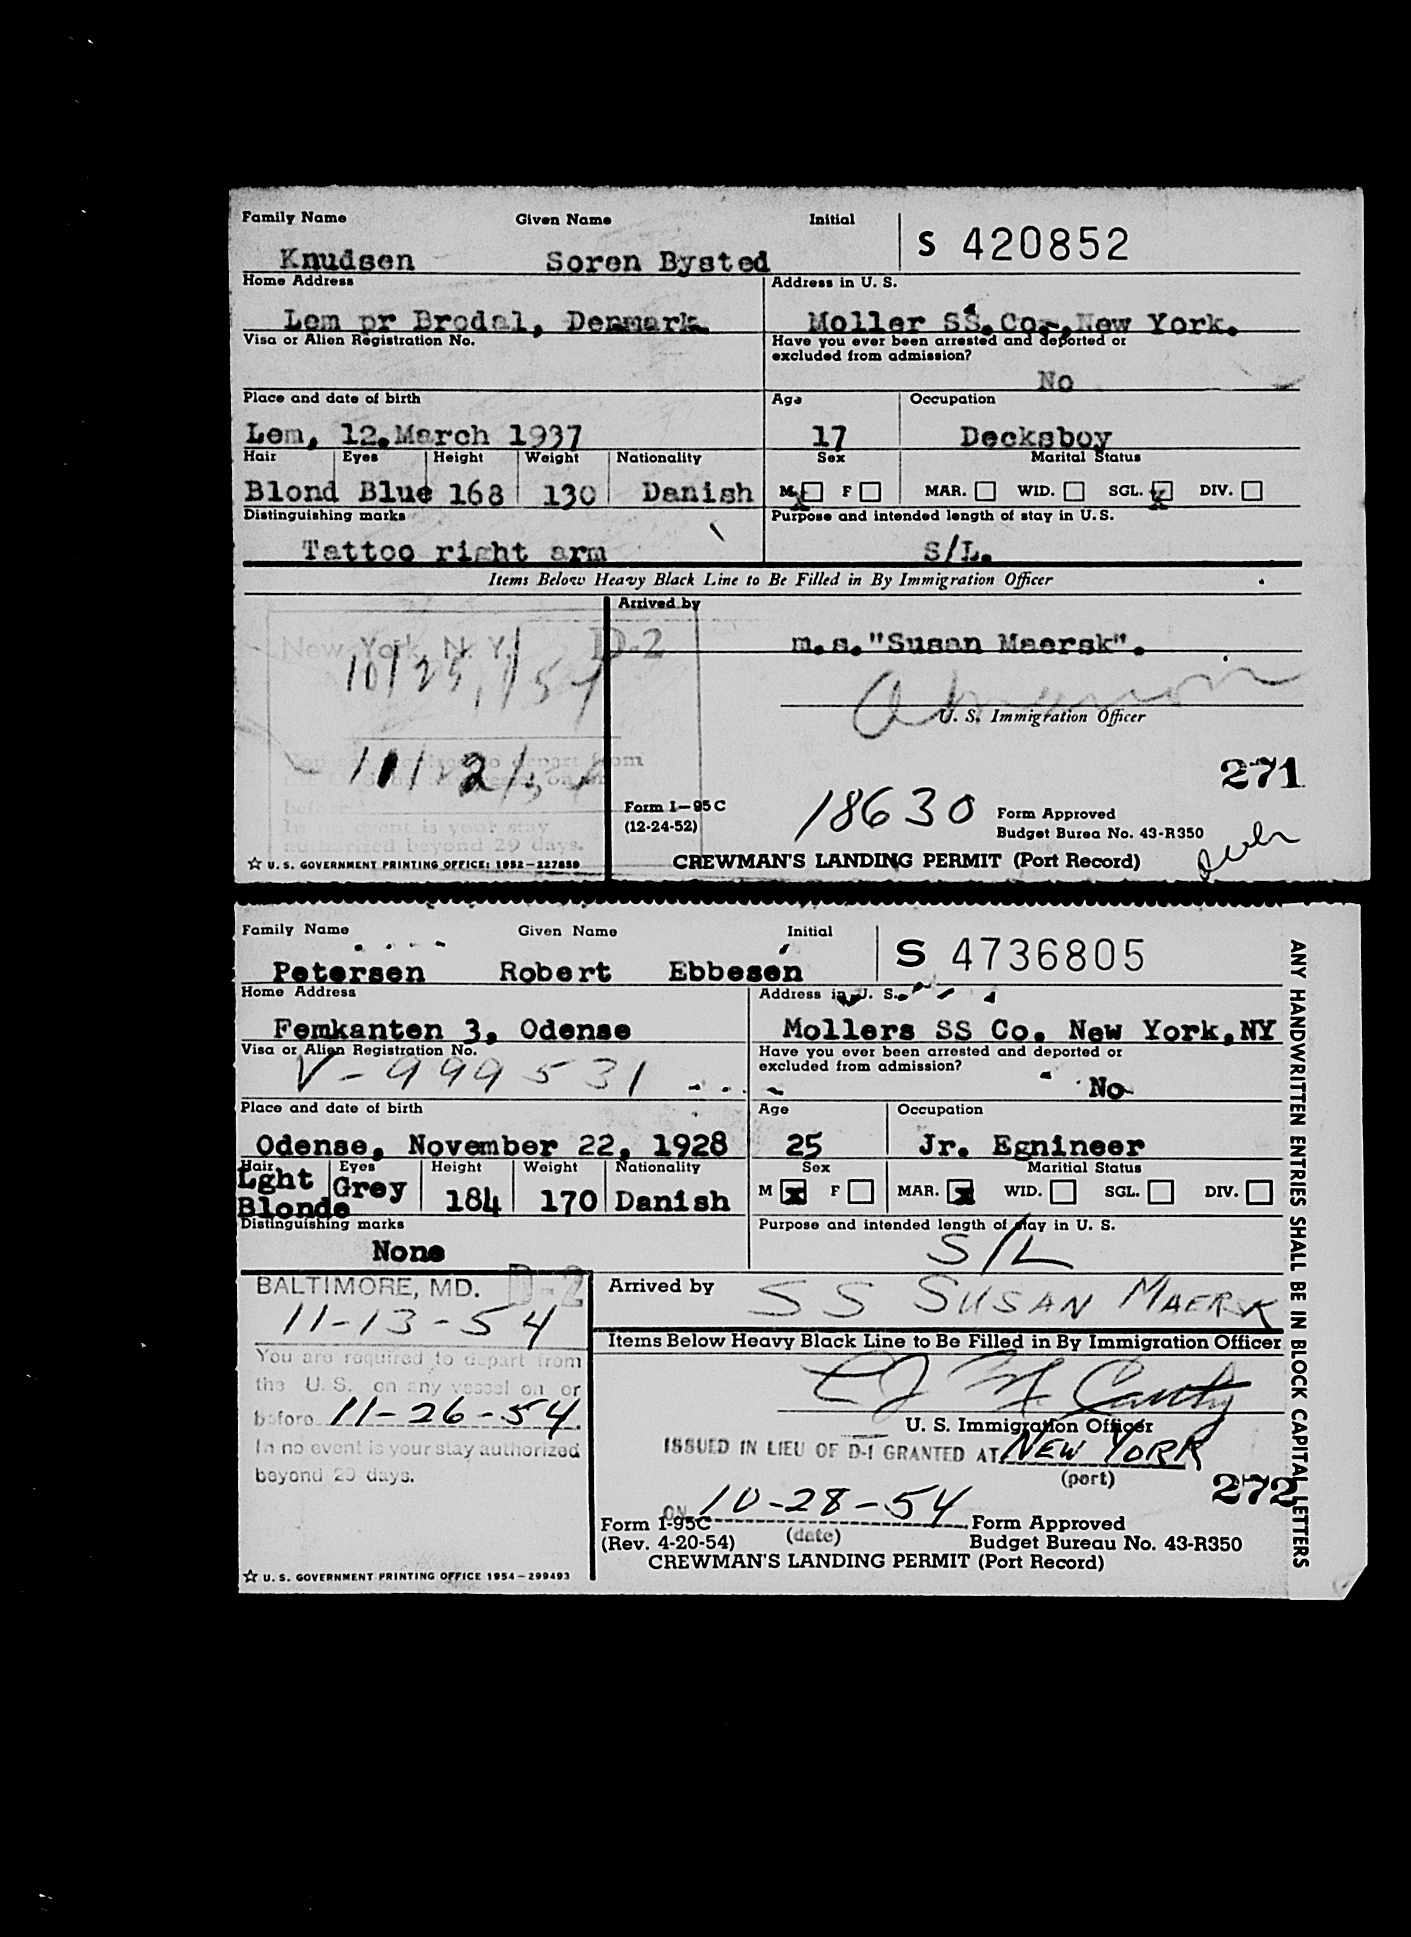 Family Name Given Name Initial
S 420852
Knudsen Soren Bysted
Home Address Address in U. S.
Lem pr Brodal, Denmark. Moller SS.Co-,New York.
Visa or Alien Registration No. Have you ever been arrested and deported or
excluded from admission?
No
Place and date of birth Age Occupation
Lem, 12.March 1937 17 Decksboy
Hair Eyes Height Weight Nationality Sex Marital Status
Blond Blue 168 130 Danish M x F MAR. WID. SGL. x DIV.
Distinguishing marks Purpose and intended length of stay in U.S.
Tattoo right arm S/L.
Items Below Heavy Black Line to Be Filled in By Immigration Officer
Arrived by
New York, N. Y. D-2
m.s."Susan Maersk".
10/25/54
U. S. Immigration Officer
You are required to depart from
11/2/54
271
before
Form I-95C 18630 Form Approved
In no event is your stay (12-24-52) Budget Burea No. 43-R350
authorized beyond 29 days.
☆ U. S. GOVERNMENT PRINTING OFFICE: 1952-227859 CREWMAN'S LANDING PERMIT (Port Record)
Family Name Given Name Initial
S 4736805
Petersen Robert Ebbesen
Home Address Address in U. S.
Femkanten 3, Odense Mollers SS Co. New York,NY
Visa or Alien Registration No. Have you ever been arrested and deported or
V-999531 excluded from admission?
No
Place and date of birth Age Occupation
Odense, November 22, 1928 25 Jr. Egnineer
Hair Eyes Height Weight Nationality Sex Maritial Status
Lght Blonde Grey 184 170 Danish M x F MAR. x WID. SGL. DIV.
Distinguishing marks Purpose and intended length of stay in U. S.
None S/L
BALTIMORE, MD. D-2 Arrived by SS SUSAN MAERSK
11-13-54
Items Below Heavy Black Line to Be Filled in By Immigration Officer
You are required to depart from
the U. S. on any vessel on or
before 11-26-54
U. S. Immigration Officer
In no event is your stay authorized
beyond 29 days.
ISSUED IN LIEU OF D-1 GRANTED AT NEW YORK
(port)
272
ON 10-28-54
Form I-95C (date) Form Approved
(Rev. 4-20-54) Budget Bureau No. 43-R350
CREWMAN'S LANDING PERMIT (Port Record)
☆ U. S. GOVERNMENT PRINTING OFFICE 1954-299493
ANY HANDWRITTEN ENTRIES SHALL BE IN BLOCK CAPITAL LETTERS